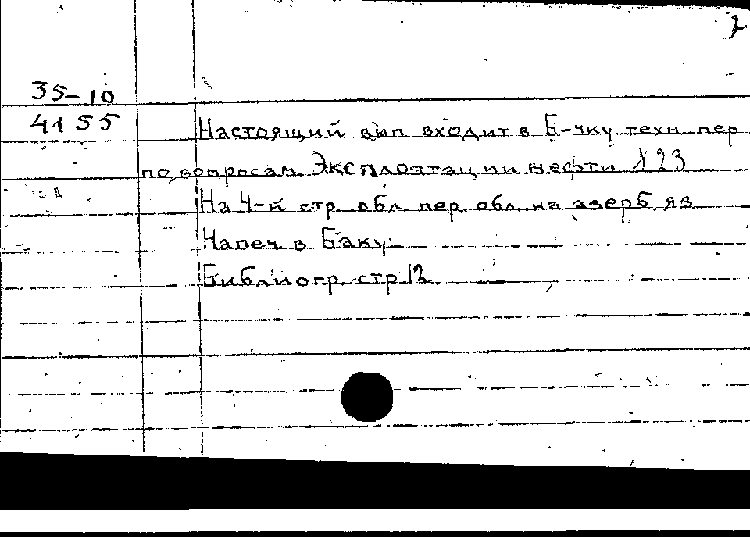 2
35-10
4155
Настоящий вып входит в Б-чку техн пер
по вопросам Эксплоатации нефти №23
На 4-й стр обл пер обл на азерб яз
Напеч в Баку
Библиогр стр 12